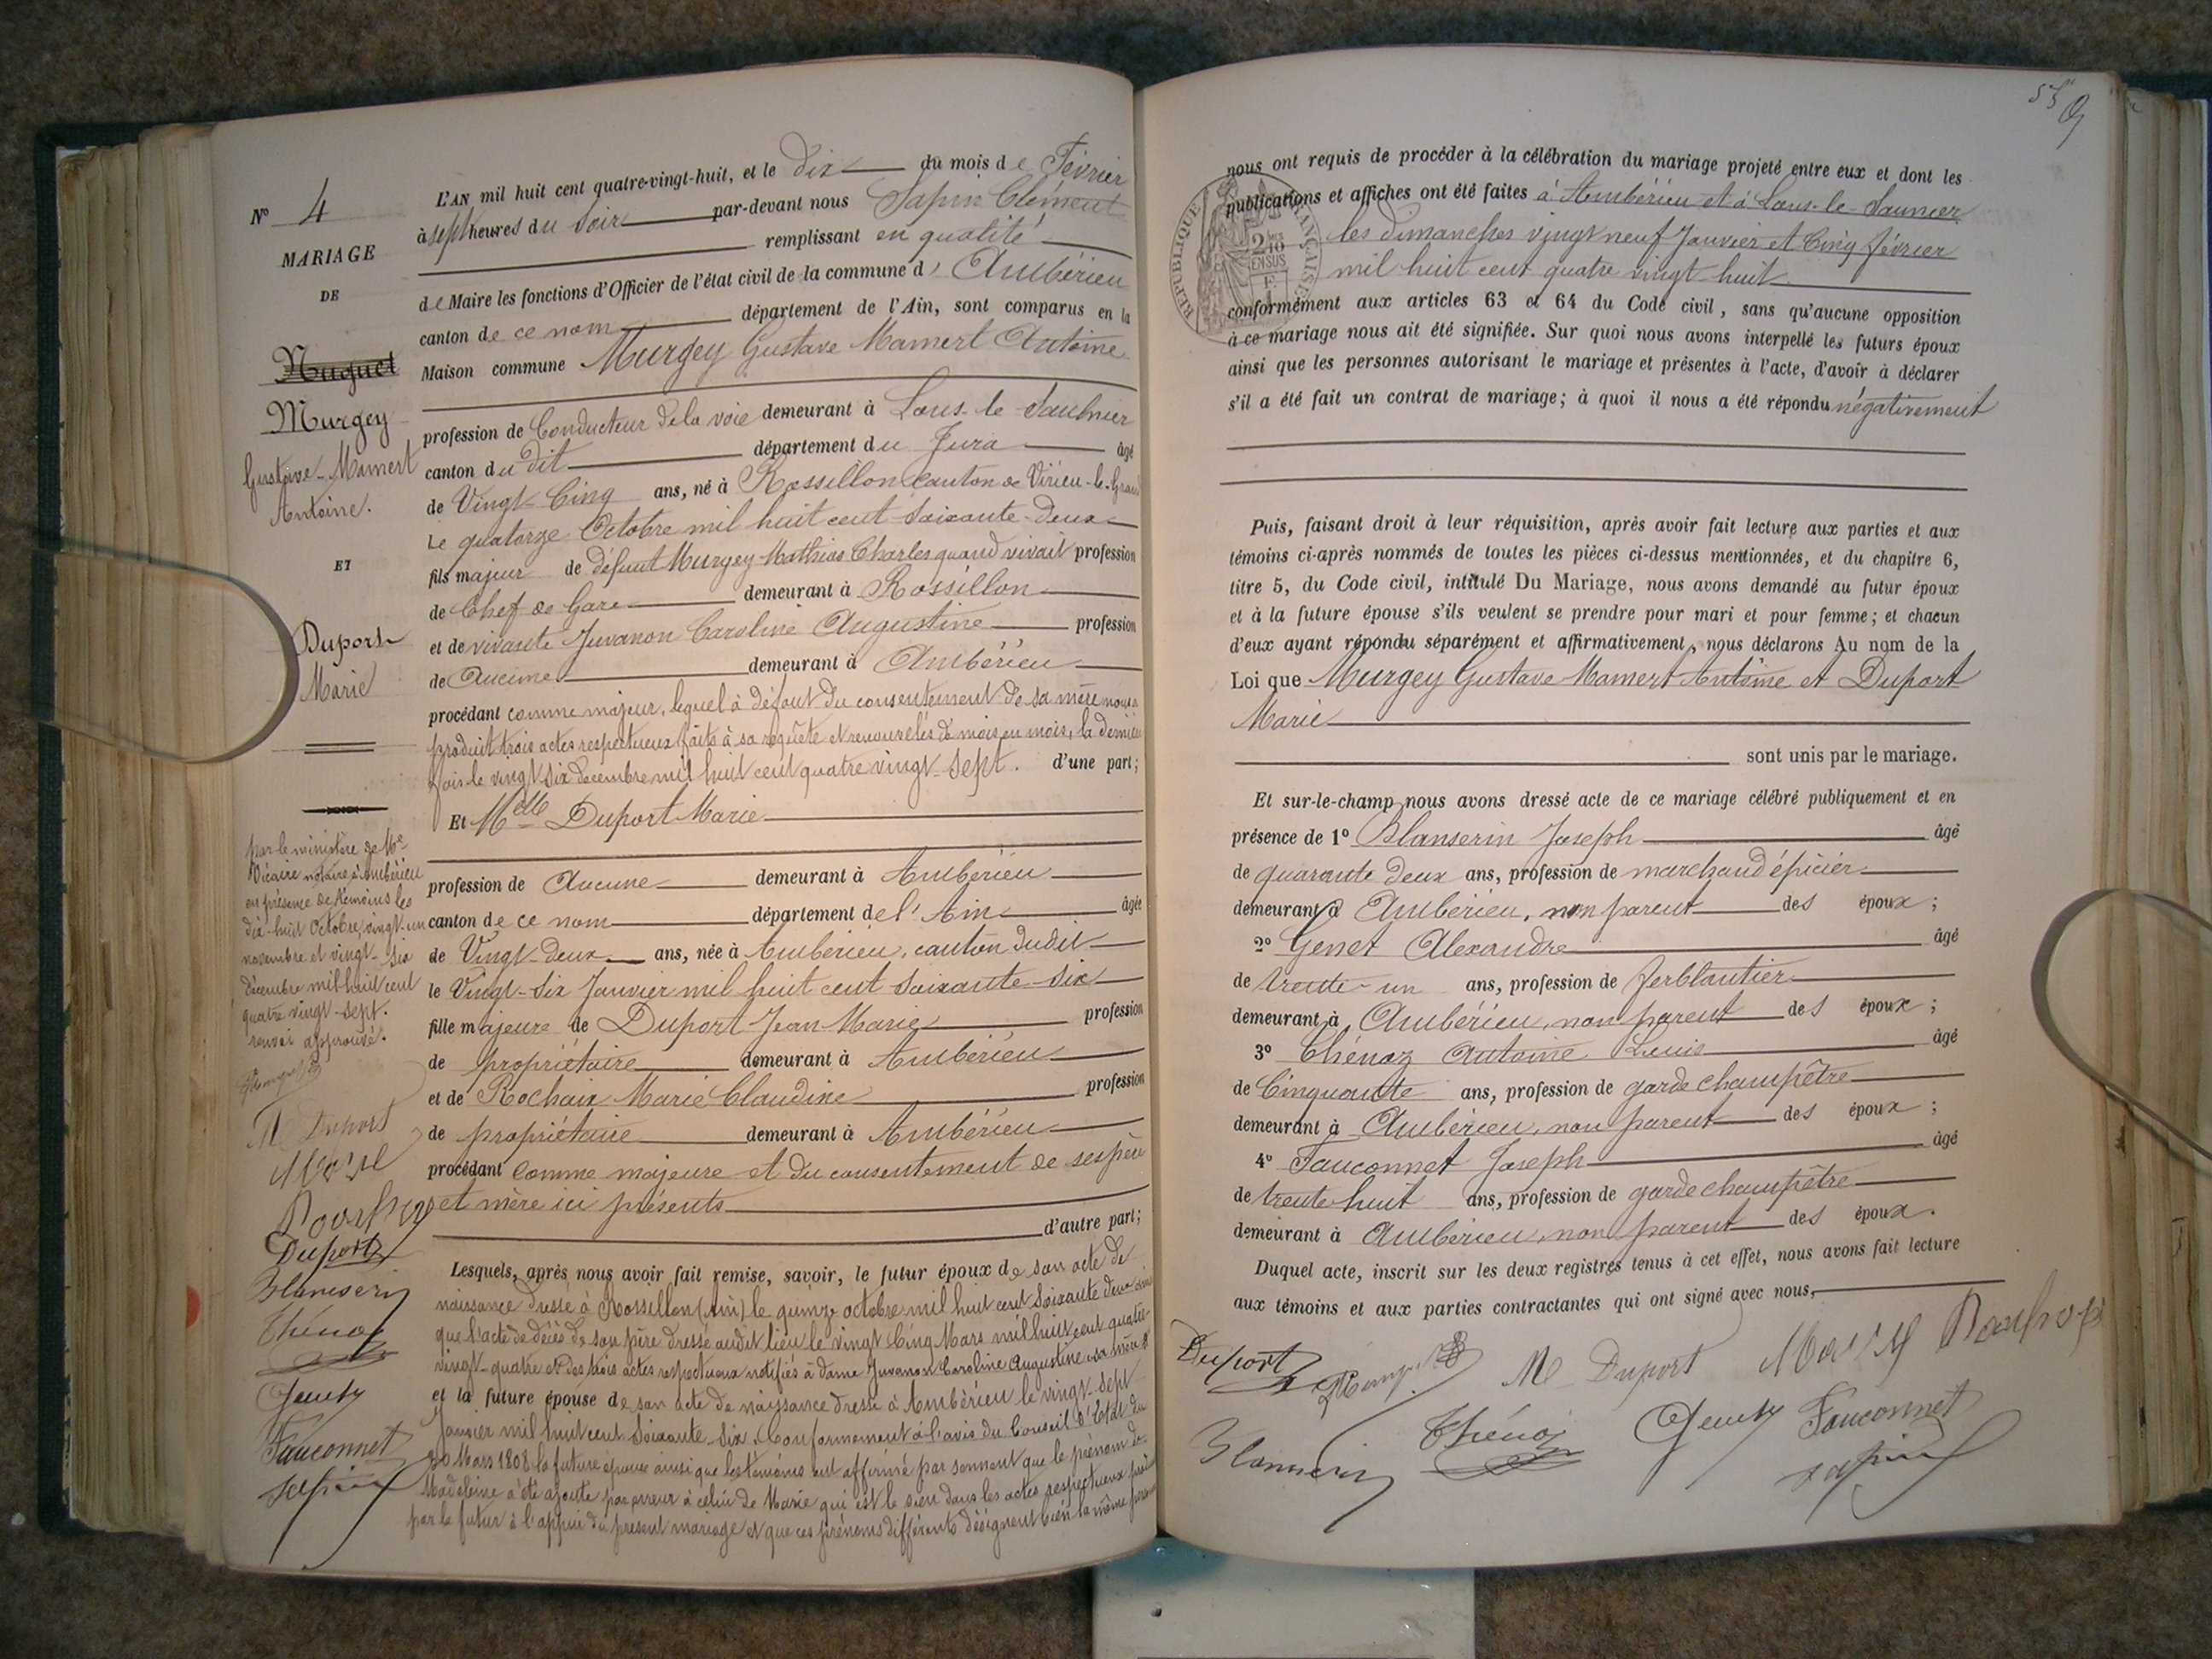 N° 4
MARIAGE
DE
Nuguet
Murgey
Gustave-Mamert
Antoine.
ET
Duport
Marie
par le ministère de Me
Vicaire notaire à Ambérieu
en présence de témoins les
dix-huit Octobre, vingt-un
novembre et vingt-six
décembre mil huit cent
quatre vingt-sept.
renvoi approuvé.
M Duport
Duport
Blanserin
Thénoz
Genety
Fauconnet
Sapin
L'AN mil huit cent quatre-vingt-huit, et le dix du mois de Février
à sept heures du Soir par-devant nous Sapin Clément
remplissant en qualité
de Maire les fonctions d'Officier de l'état civil de la commune d' Ambérieu
canton de ce nom département de l'Ain, sont comparus en la
Maison commune Murgey Gustave Mamert Antoine
profession de Conducteur de la voie demeurant à Lons-le-Saulnier
canton du dit département du Jura âgé
de Vingt-Cinq ans, né à Rossillon canton de Virieu-le-Grand
Le quatorze Octobre mil huit cent Soixante-deux
fils majeur de défunt Murgey Mathias Charles quand vivait profession
de Chef de Gare demeurant à Rossillon
et de vivante Juvanon Caroline Augustine profession
de Aucune demeurant à Ambérieu
procédant comme majeur, lequel à défaut du consentement de sa mère nous a
produit trois actes respectueux faits à sa requête et renouvelés de mois en mois, la dernière
fois le vingt six décembre mil huit cent quatre vingt-sept. d'une part;
Et Melle Duport Marie
profession de Aucune demeurant à Ambérieu
canton de ce nom département de l'Ain âgée
de Vingt-Deux ans, née à Ambérieu, canton dudit
le Vingt-Six Janvier mil huit cent Soixante-Six
fille majeure de Duport Jean-Marie profession
de propriétaire demeurant à Ambérieu
et de Rochaix Marie Claudine profession
de propriétaire demeurant à Ambérieu
procédant comme majeure et du consentement de ses père
et mère ici présents
d'autre part;
Lesquels, après nous avoir fait remise, savoir, le futur époux de son acte de
naissance dressé à Rossillon (Ain) le quinze octobre mil huit cent Soixante deux ainsi
que l'acte de décès de son père dressé audit lieu le vingt Cinq Mars mil huit cent quatre
vingt-quatre et des trois actes respectueux notifiés à dame Juvanon Caroline Augustine sa mère
et la future épouse de son acte de naissance dressé à Ambérieu le vingt-sept
Janvier mil huit cent Soixante-Six. Conformément à l'avis du Conseil d'Etat du
30 Mars 1808 la future épouse ainsi que les témoins ont affirmé par serment que le prénom de
Madeleine a été ajouté par erreur à celui de Marie qui est le sien dans les actes respectueux
par le futur à l'appui du présent mariage et que ces prénoms différents désignent bien la même
55
nous ont requis de procéder à la célébration du mariage projeté entre eux et dont les
publications et affiches ont été faites à Ambérieu et à Lons-le-Saunier
les dimanches vingt neuf Janvier et Cinq février
mil huit cent quatre vingt-huit
conformément aux articles 63 et 64 du Code civil, sans qu'aucune opposition
à ce mariage nous ait été signifiée. Sur quoi nous avons interpellé les futurs époux
ainsi que les personnes autorisant le mariage et présentes à l'acte, d'avoir à déclarer
s'il a été fait un contrat de mariage; à quoi il nous a été répondu négativement
Puis, faisant droit à leur réquisition, après avoir fait lecture aux parties et aux
témoins ci-après nommés de toutes les pièces ci-dessus mentionnées, et du chapitre 6,
titre 5, du Code civil, intitulé Du Mariage, nous avons demandé au futur époux
et à la future épouse s'ils veulent se prendre pour mari et pour femme; et chacun
d'eux ayant répondu séparément et affirmativement, nous déclarons Au nom de la
Loi que Murgey Gustave Mamert Antoine et Duport
Marie
sont unis par le mariage.
Et sur-le-champ nous avons dressé acte de ce mariage célébré publiquement et en
présence de 1° Blanserin Joseph âgé
de quarante deux ans, profession de marchand épicier
demeurant à Ambérieu, non parent des époux;
2° Genet Alexandre âgé
de trente-un ans, profession de ferblantier
demeurant à Ambérieu, non parent des époux;
3° Thénoz Antoine Louis âgé
de Cinquante ans, profession de garde champêtre
demeurant à Ambérieu, non parent des époux;
4° Fauconnet Joseph âgé
de trente huit ans, profession de garde champêtre
demeurant à Ambérieu, non parent des époux.
Duquel acte, inscrit sur les deux registres tenus à cet effet, nous avons fait lecture
aux témoins et aux parties contractantes qui ont signé avec nous,
Duport M Duport
Blanserin Thénoz Genety Fauconnet
Sapin